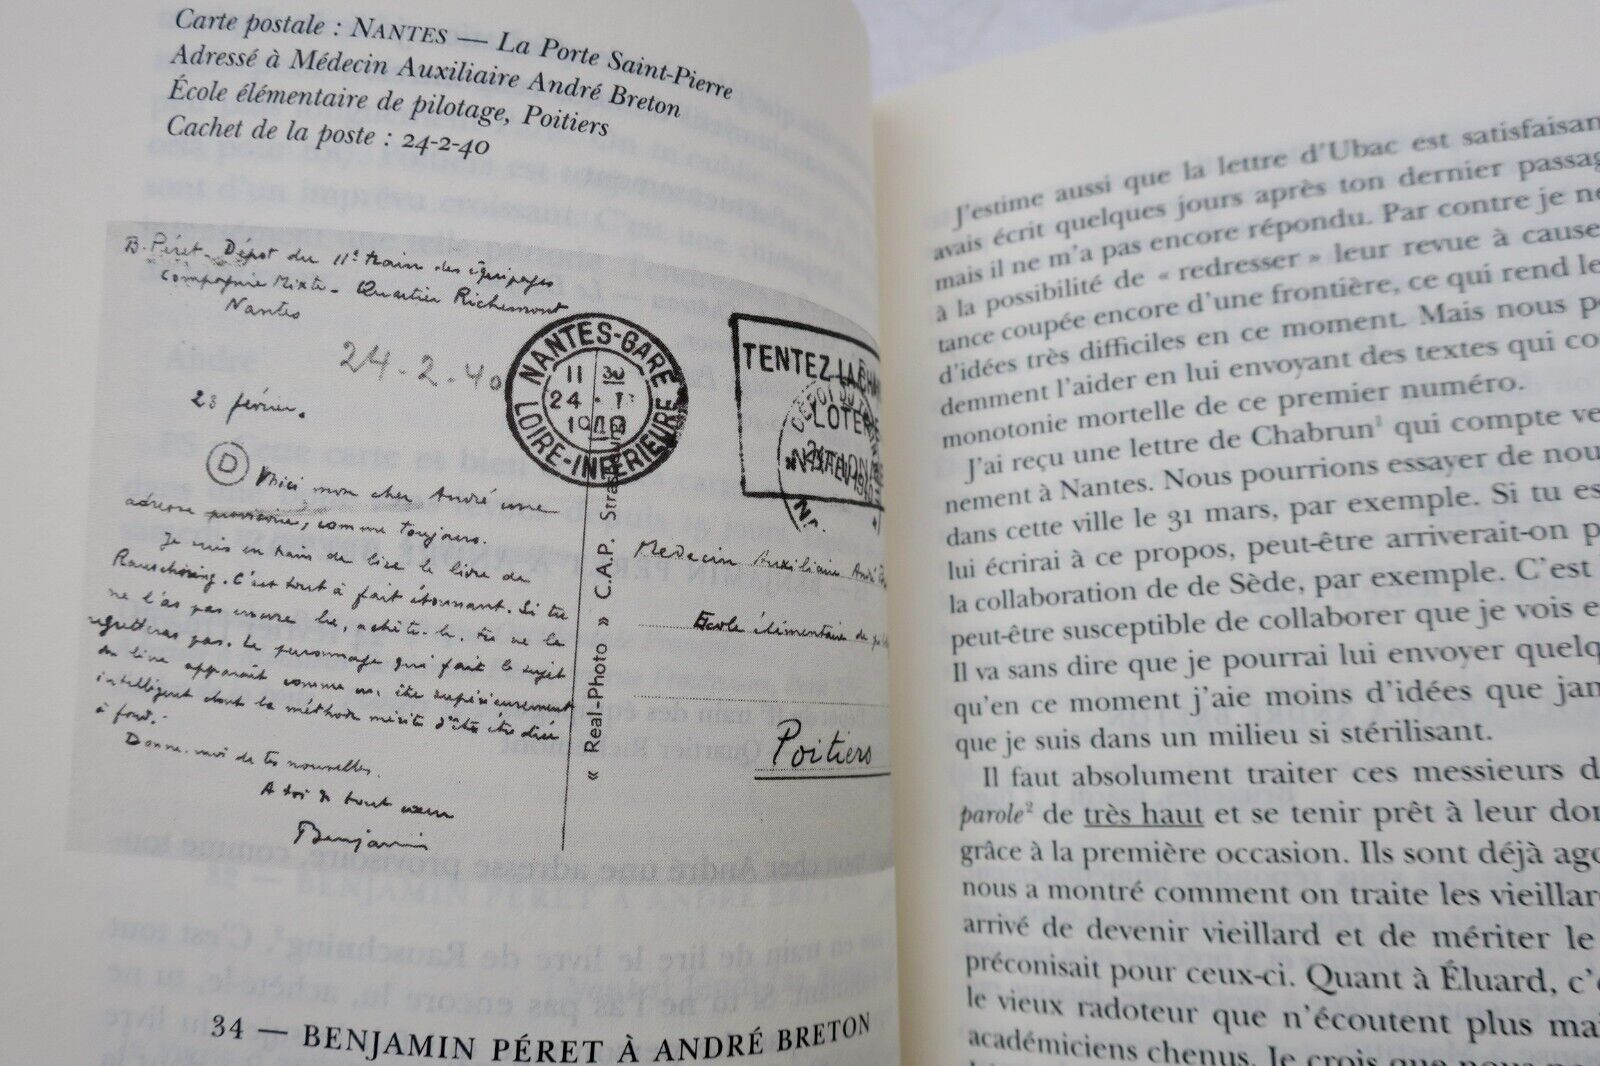 Carte postale : NANTES — La Porte Saint-Pierre
Adressé à Médecin Auxiliaire André Breton
École élémentaire de pilotage, Poitiers
Cachet de la poste : 24-2-40
B. Péret - Dépôt du 11e train des équipages
Compagnie Mixte - Quartier Richemont
Nantes
24-2-40
23 février.
D
Voici mon cher André une
adresse provisoire, comme toujours.
Je suis en train de lire le livre de
Rauschning. C'est tout à fait étonnant. Si tu
ne l'as pas encore lu, achète-le, tu ne le
regretteras pas. Le personnage qui fait le sujet
du livre apparaît comme un être supérieurement
intelligent dont la méthode mérite d'être étudiée
à fond.
Donne-moi de tes nouvelles.
A toi de tout cœur
Benjamin
NANTES-GARE
11 30
24 - II
1940
LOIRE-INFÉRIEURE
TENTEZ LA CHAN
LOTERIE
NATIONA
« Real-Photo » C.A.P. Strasbourg
Médecin Auxiliaire André
École élémentaire de
Poitiers
34 — BENJAMIN PÉRET À ANDRÉ BRETON
J'estime aussi que la lettre d'Ubac est satisfaisan
avais écrit quelques jours après ton dernier passag
mais il ne m'a pas encore répondu. Par contre je ne
à la possibilité de « redresser » leur revue à cause
tance coupée encore d'une frontière, ce qui rend le
d'idées très difficiles en ce moment. Mais nous po
demment l'aider en lui envoyant des textes qui co
monotonie mortelle de ce premier numéro.
J'ai reçu une lettre de Chabrun1 qui compte ve
nement à Nantes. Nous pourrions essayer de nou
dans cette ville le 31 mars, par exemple. Si tu es
lui écrirai à ce propos, peut-être arriverait-on p
la collaboration de de Sède, par exemple. C'est
peut-être susceptible de collaborer que je vois e
Il va sans dire que je pourrai lui envoyer quelq
qu'en ce moment j'aie moins d'idées que jam
que je suis dans un milieu si stérilisant.
Il faut absolument traiter ces messieurs d
parole2 de très haut et se tenir prêt à leur don
grâce à la première occasion. Ils sont déjà ago
nous a montré comment on traite les vieillard
arrivé de devenir vieillard et de mériter le
préconisait pour ceux-ci. Quant à Éluard, c'e
le vieux radoteur que n'écoutent plus mai
académiciens chenus. Je crois que nous ne